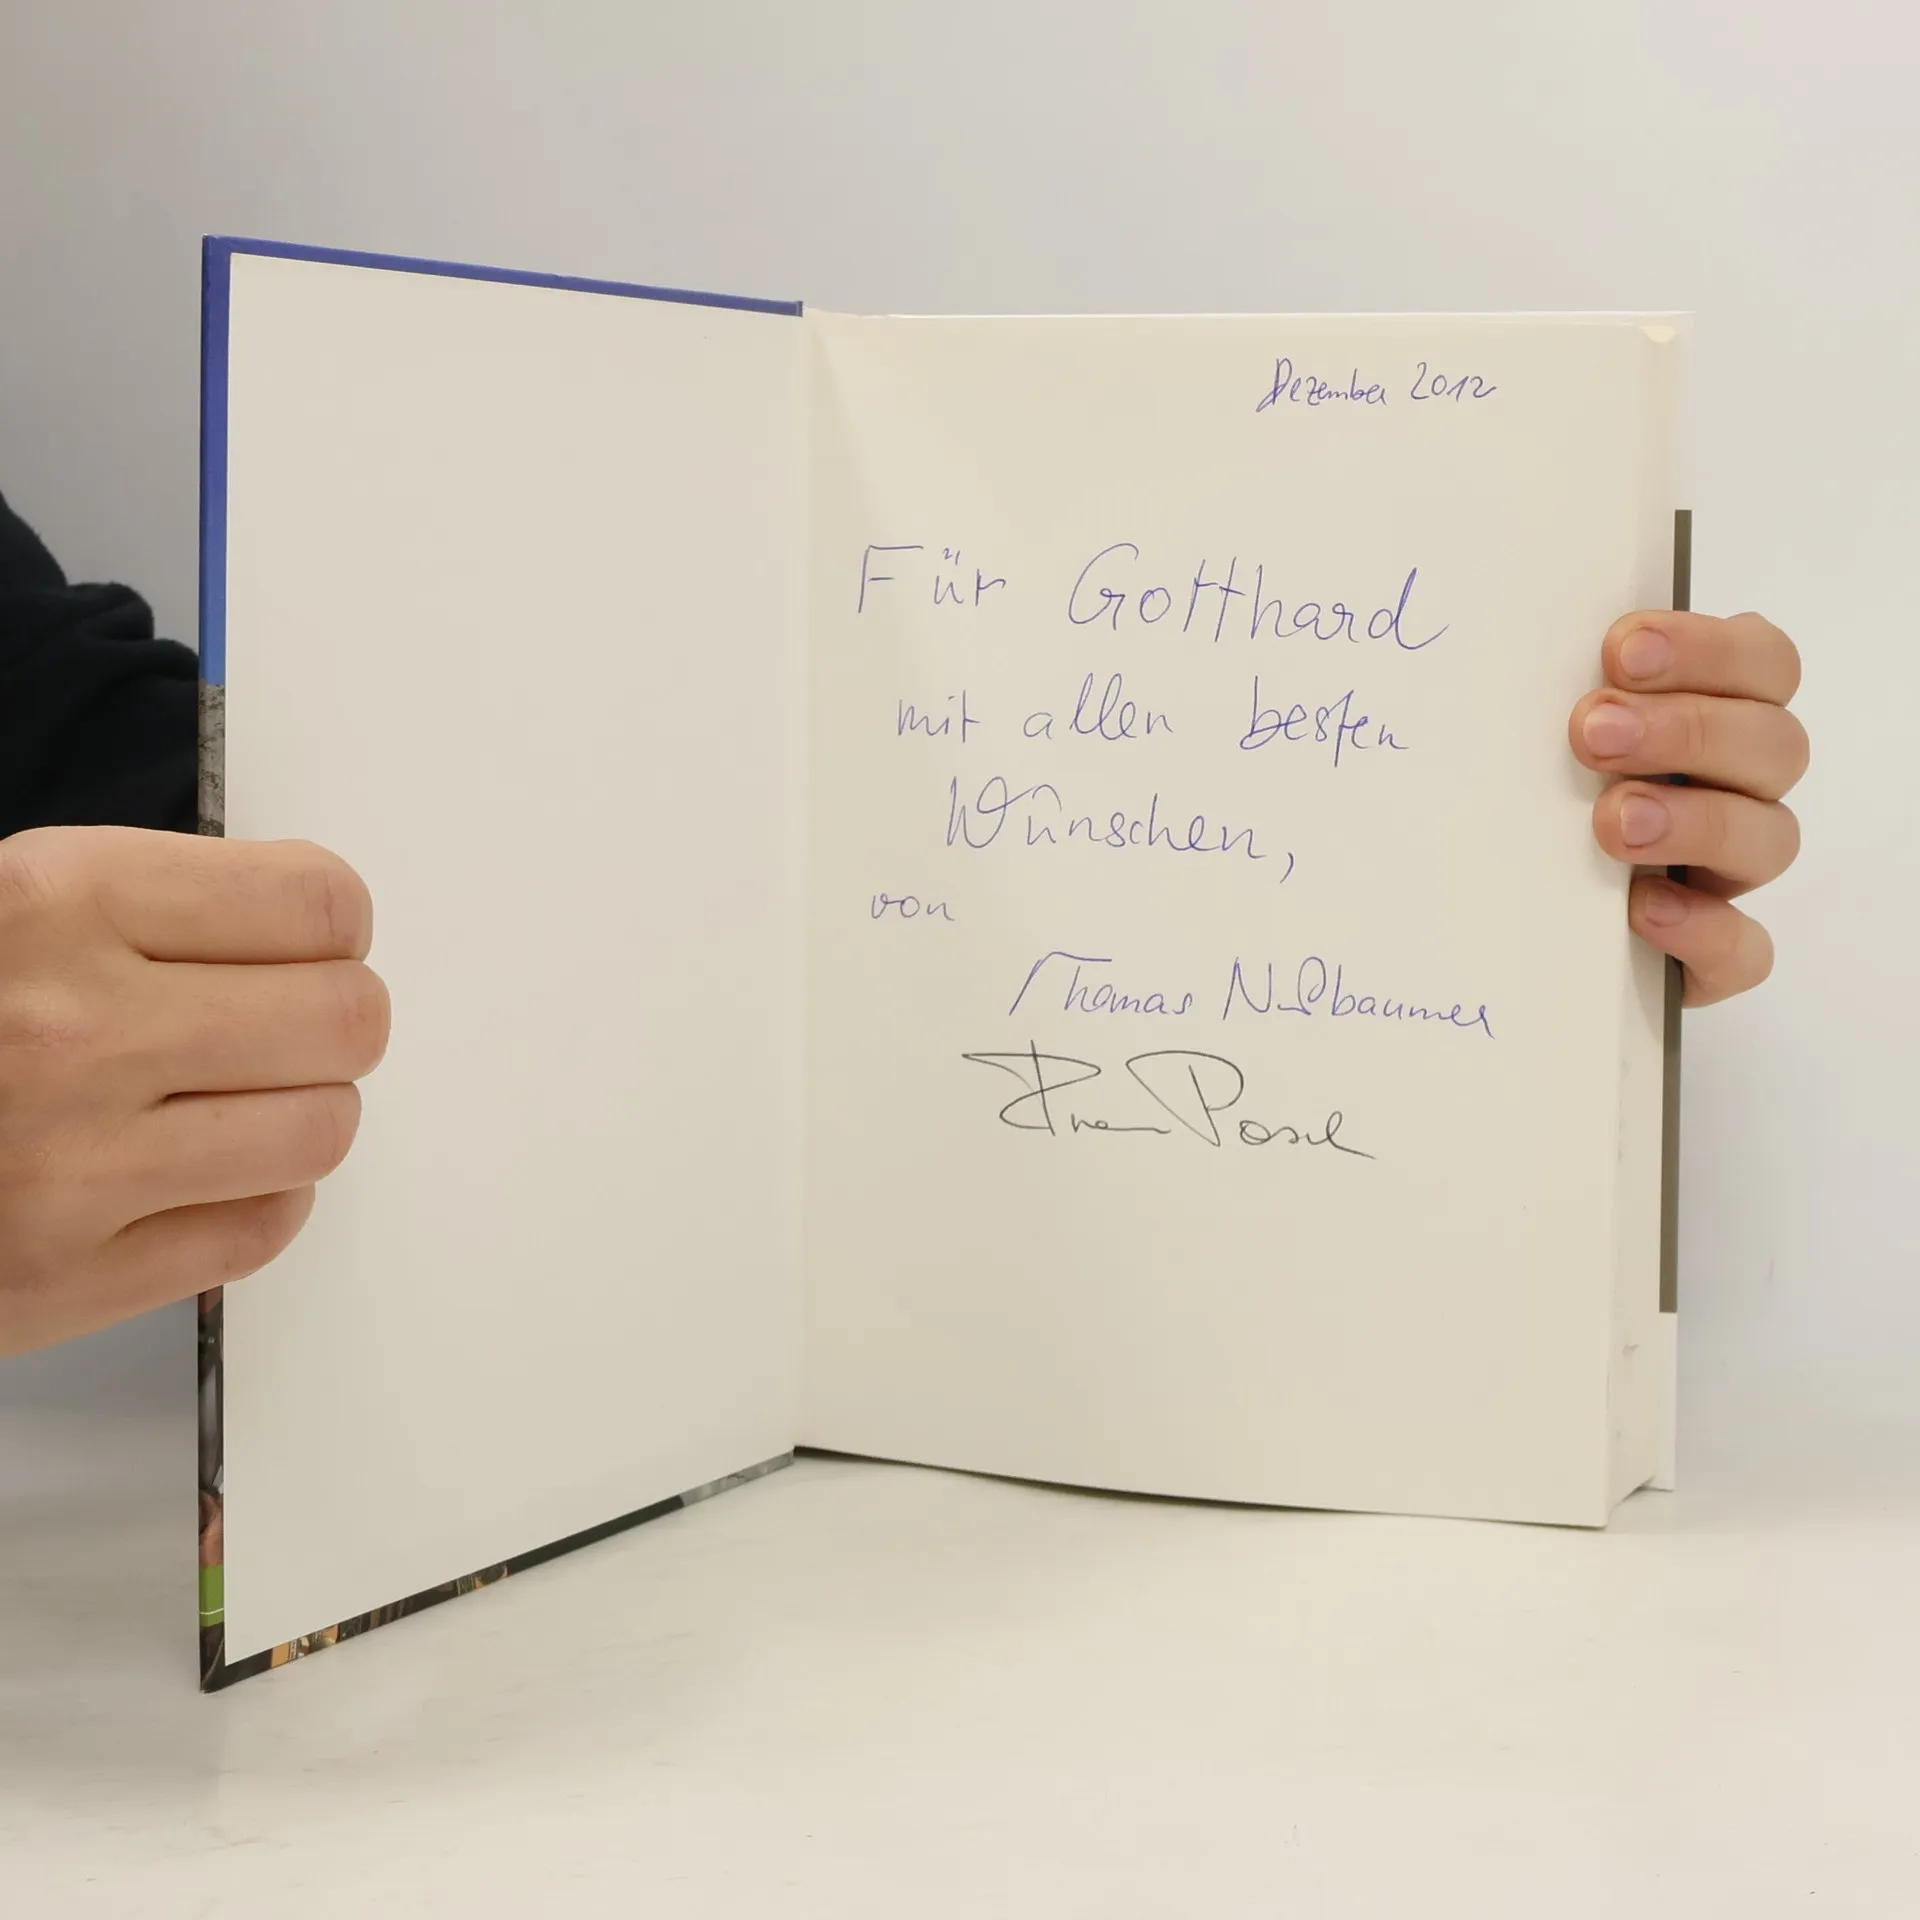 Dezember 2012
Für Gotthard
mit allen besten
Wünschen,
von
Thomas Nußbaumer
Posch